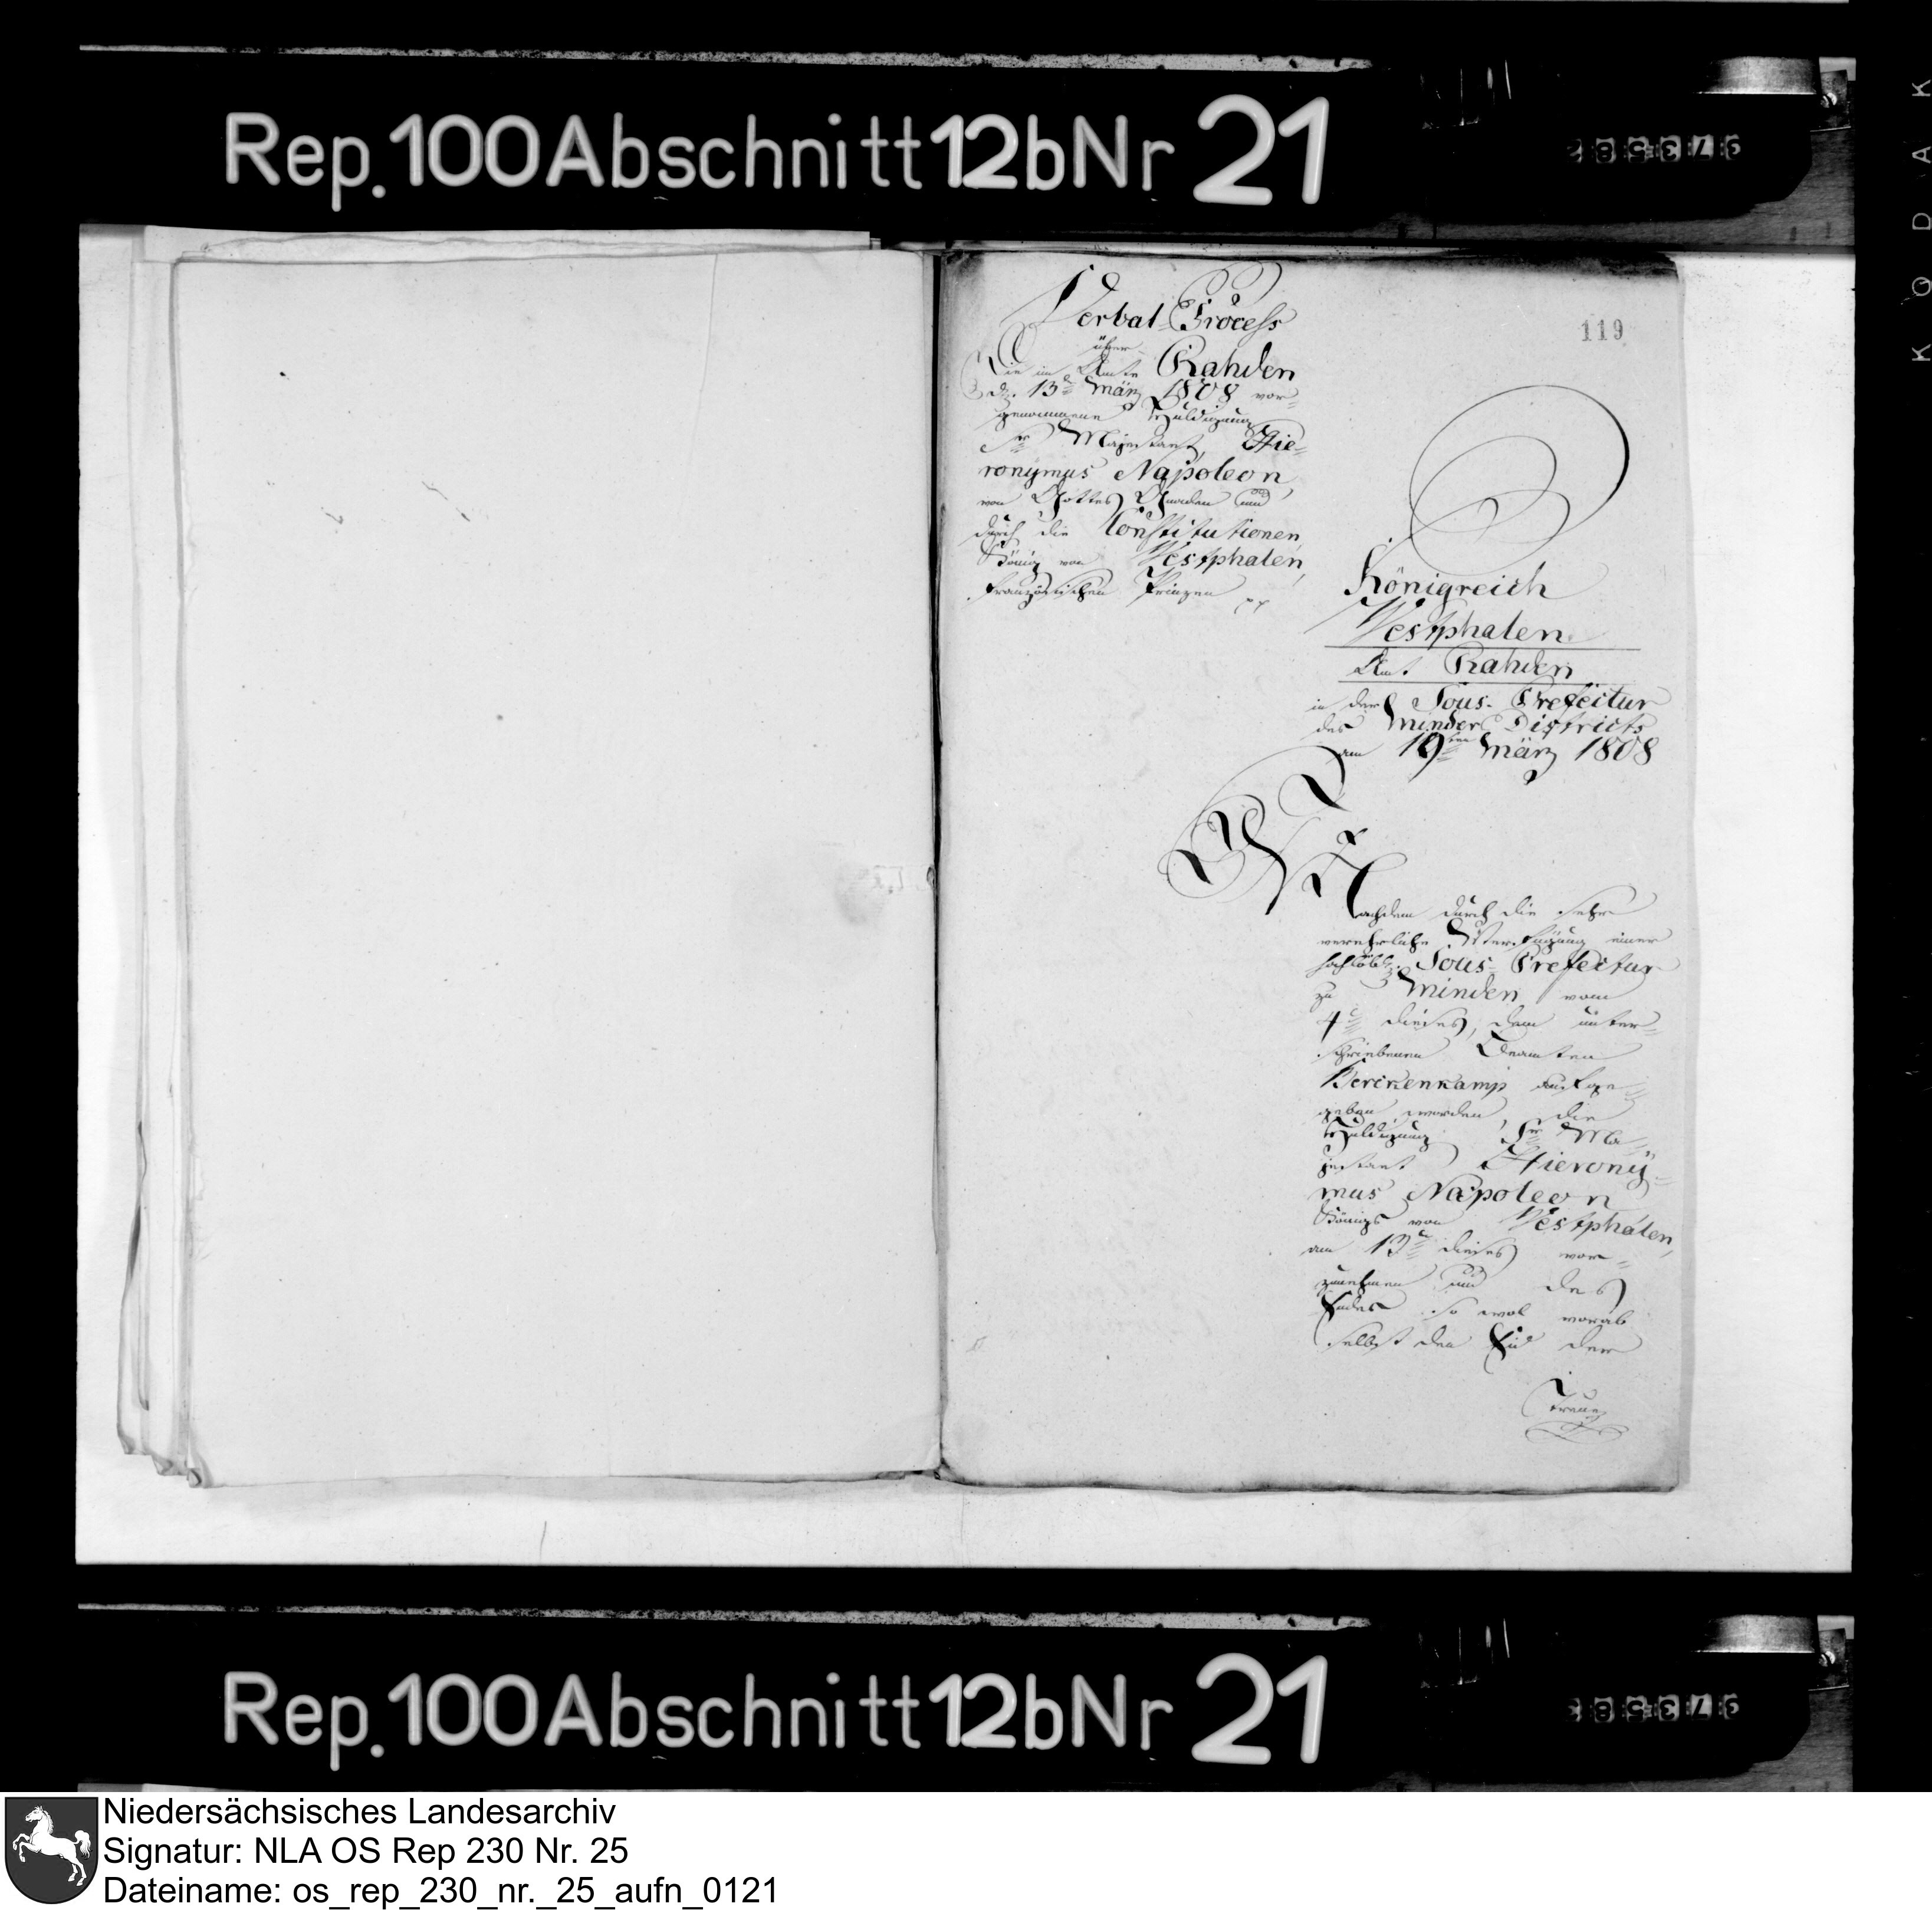 Rep. 100 Abschnitt 12b Nr 21
KODAK
Verbal-Process
über
Die im Amte Rahden
d. 13t März 1808 vor=
genommene Huldigung
Sr Majestaet, Hie=
ronymus Napoleon,
von Gottes Gnaden und
durch die Constitutionen
König von Westphalen,
französischen Prinzen pp
119
Königreich
Westphalen
Amt Rahden
in der Sous-Prefectur
des Minder Districts
am 19ten März 1808
Nachdem durch die sehr
verehrliche Verfügung einer
hochlöbl. Sous-Prefectur
zu Minden vom
4t dieses, dem unter=
schriebenen Beamten
Berckenkamp aufge=
geben worden, die
Huldigung Sr Ma=
jestaet Hierony=
mus Napoleon
Königs von Westphalen,
am 13t dieses vor=
zunehmen und des
Endes so wol vorab
selbst den Eid der
Treue
Rep. 100 Abschnitt 12b Nr 21
Niedersächsisches Landesarchiv
Signatur: NLA OS Rep 230 Nr. 25
Dateiname: os_rep_230_nr._25_aufn_0121